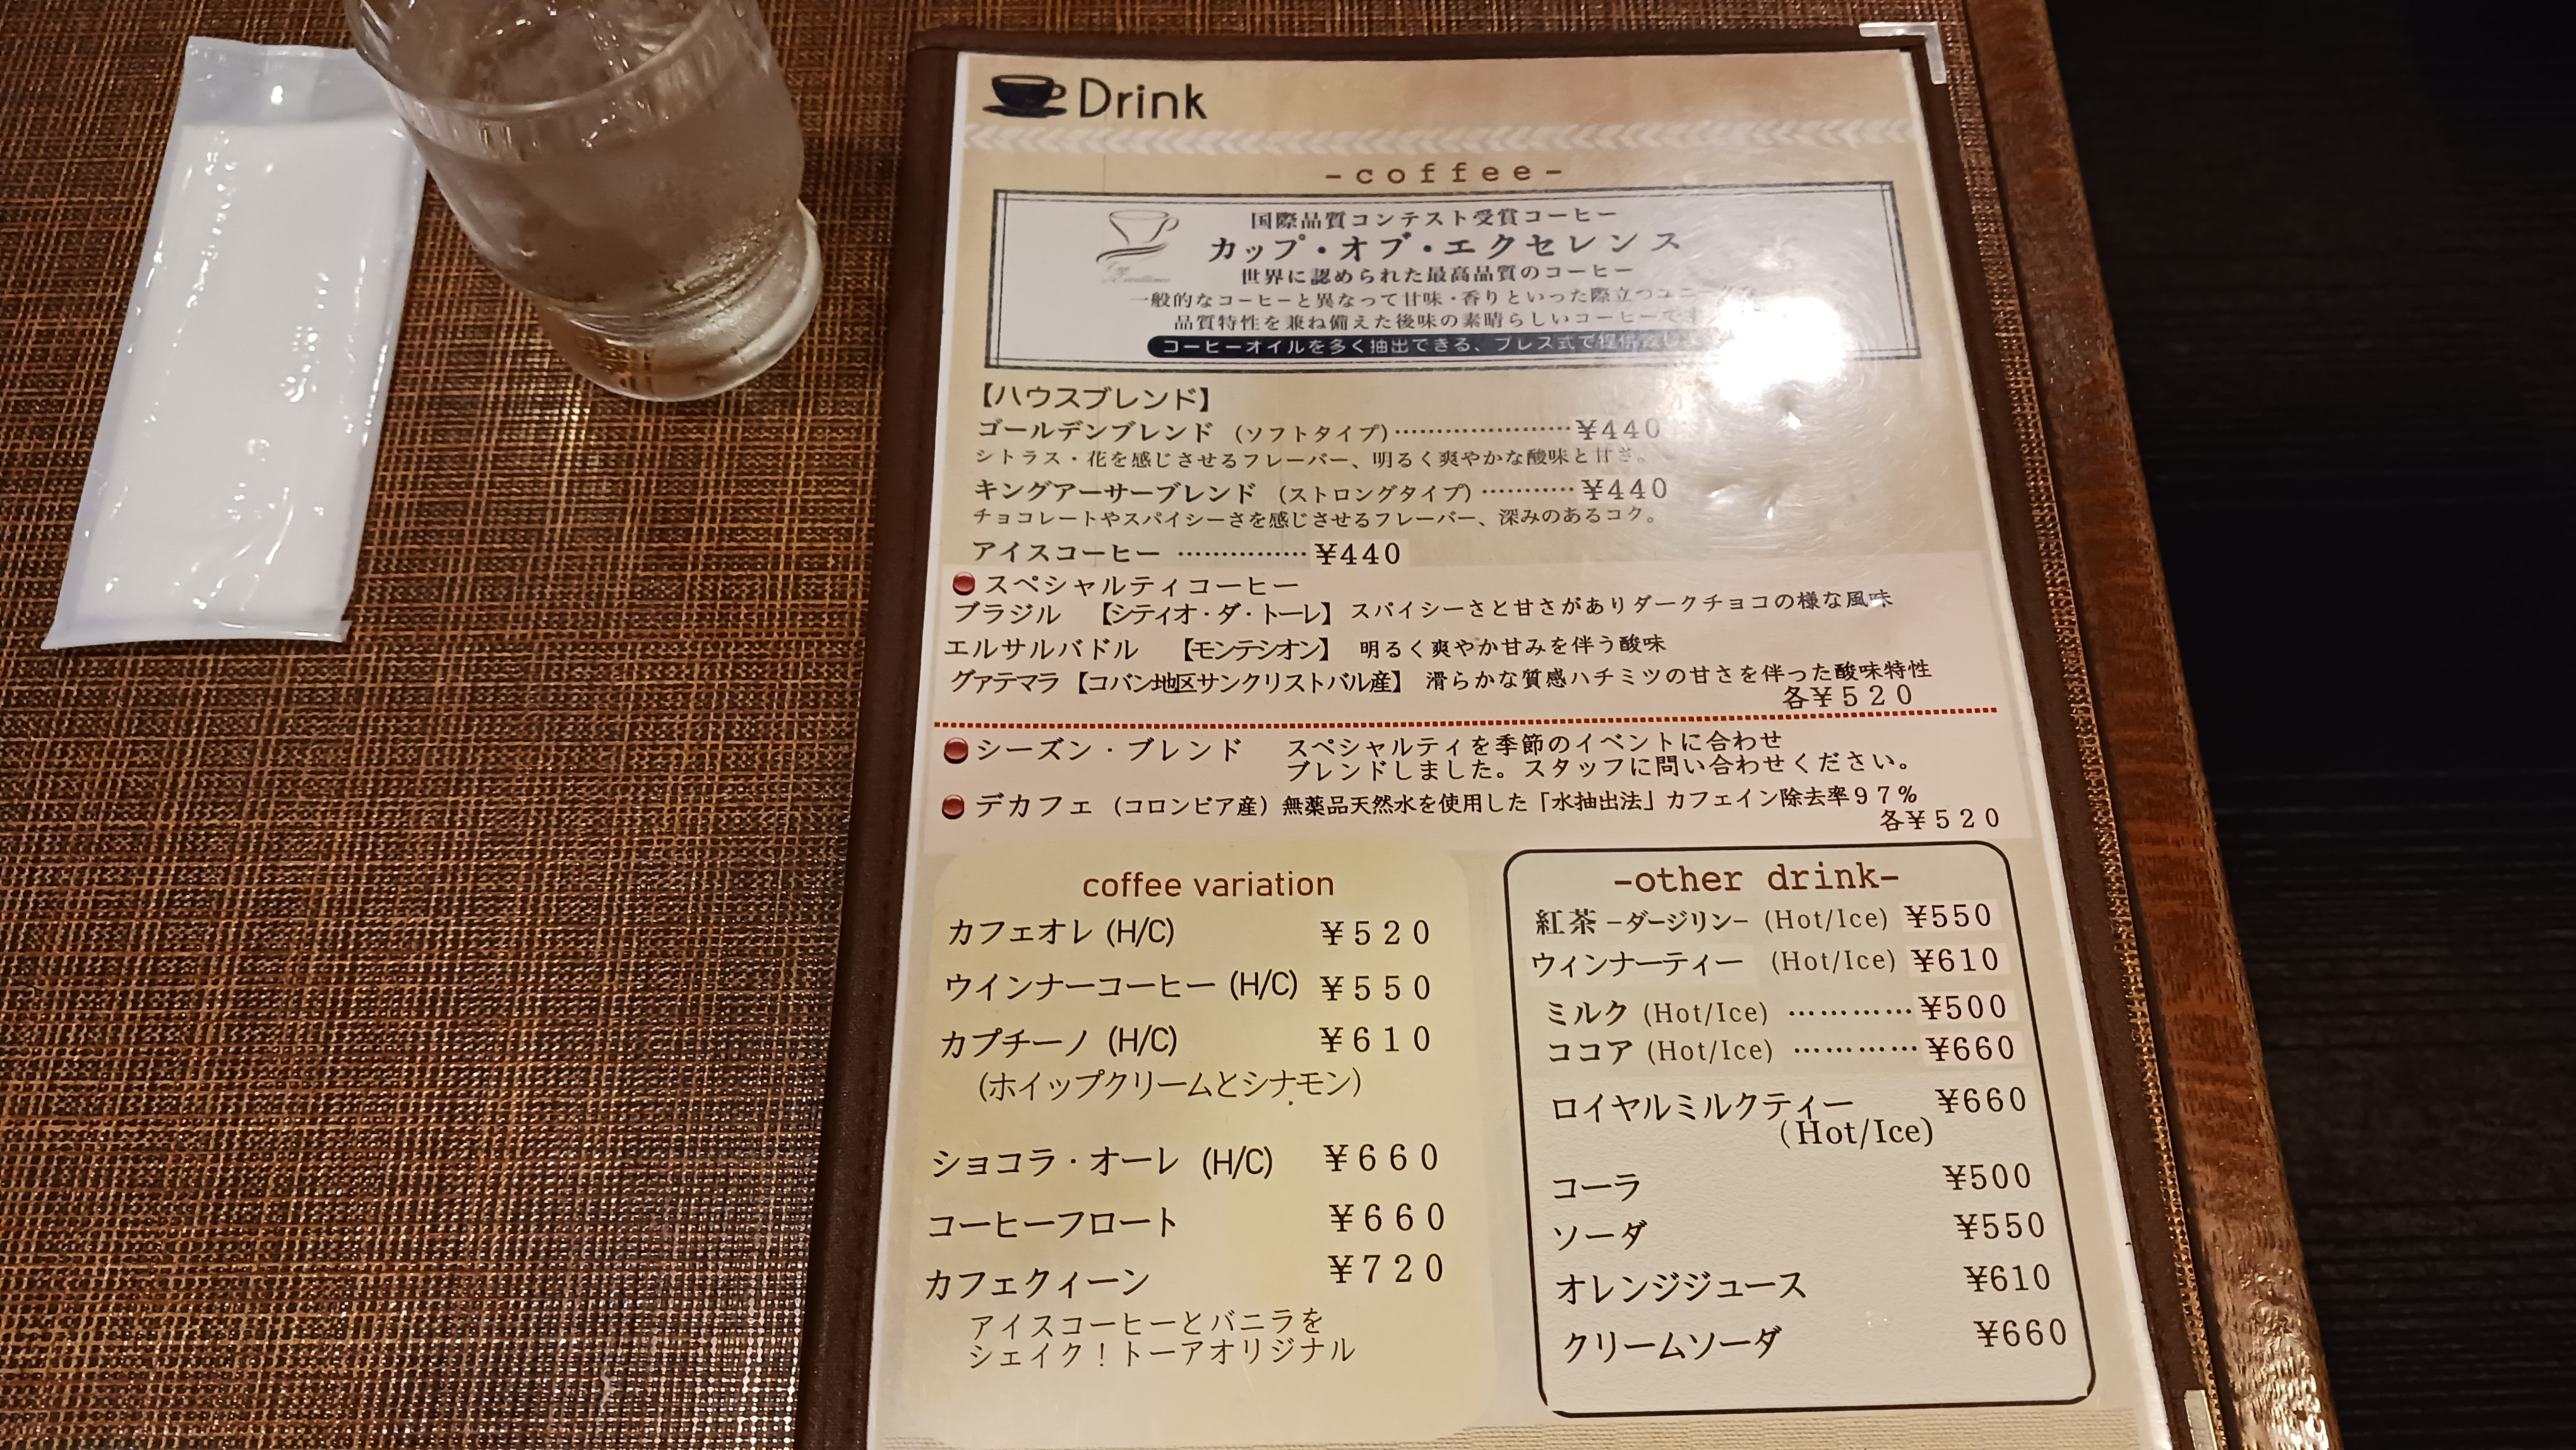 Drink
-coffee-
国際品質コンテスト受賞コーヒー
カップ・オブ・エクセレンス
世界に認められた最高品質のコーヒー
一般的なコーヒーと異なって甘味・香りといった際立つ
品質特性を兼ね備えた後味の素晴らしいコーヒーです
コーヒーオイルを多く抽出できる、プレス式で提供致し
【ハウスブレンド】
ゴールデンブレンド (ソフトタイプ)…………………¥440
シトラス・花を感じさせるフレーバー、明るく爽やかな酸味と甘さ。
キングアーサーブレンド (ストロングタイプ)…………¥440
チョコレートやスパイシーさを感じさせるフレーバー、深みのあるコク。
アイスコーヒー ……………¥440
スペシャルティコーヒー
ブラジル 【シティオ・ダ・トーレ】 スパイシーさと甘さがありダークチョコの様な風味
エルサルバドル 【モンテシオン】 明るく爽やか甘みを伴う酸味
グァテマラ 【コバン地区サンクリストバル産】 滑らかな質感ハチミツの甘さを伴った酸味特性
各¥520
シーズン・ブレンド スペシャルティを季節のイベントに合わせ
ブレンドしました。スタッフに問い合わせください。
デカフェ (コロンビア産) 無薬品天然水を使用した「水抽出法」カフェイン除去率97%
各¥520
coffee variation
カフェオレ (H/C) ¥520
ウインナーコーヒー (H/C) ¥550
カプチーノ (H/C) ¥610
(ホイップクリームとシナモン)
ショコラ・オーレ (H/C) ¥660
コーヒーフロート ¥660
カフェクィーン ¥720
アイスコーヒーとバニラを
シェイク！トーアオリジナル
-other drink-
紅茶 -ダージリン- (Hot/Ice) ¥550
ウィンナーティー (Hot/Ice) ¥610
ミルク (Hot/Ice) …………¥500
ココア (Hot/Ice) …………¥660
ロイヤルミルクティー ¥660
(Hot/Ice)
コーラ ¥500
ソーダ ¥550
オレンジジュース ¥610
クリームソーダ ¥660